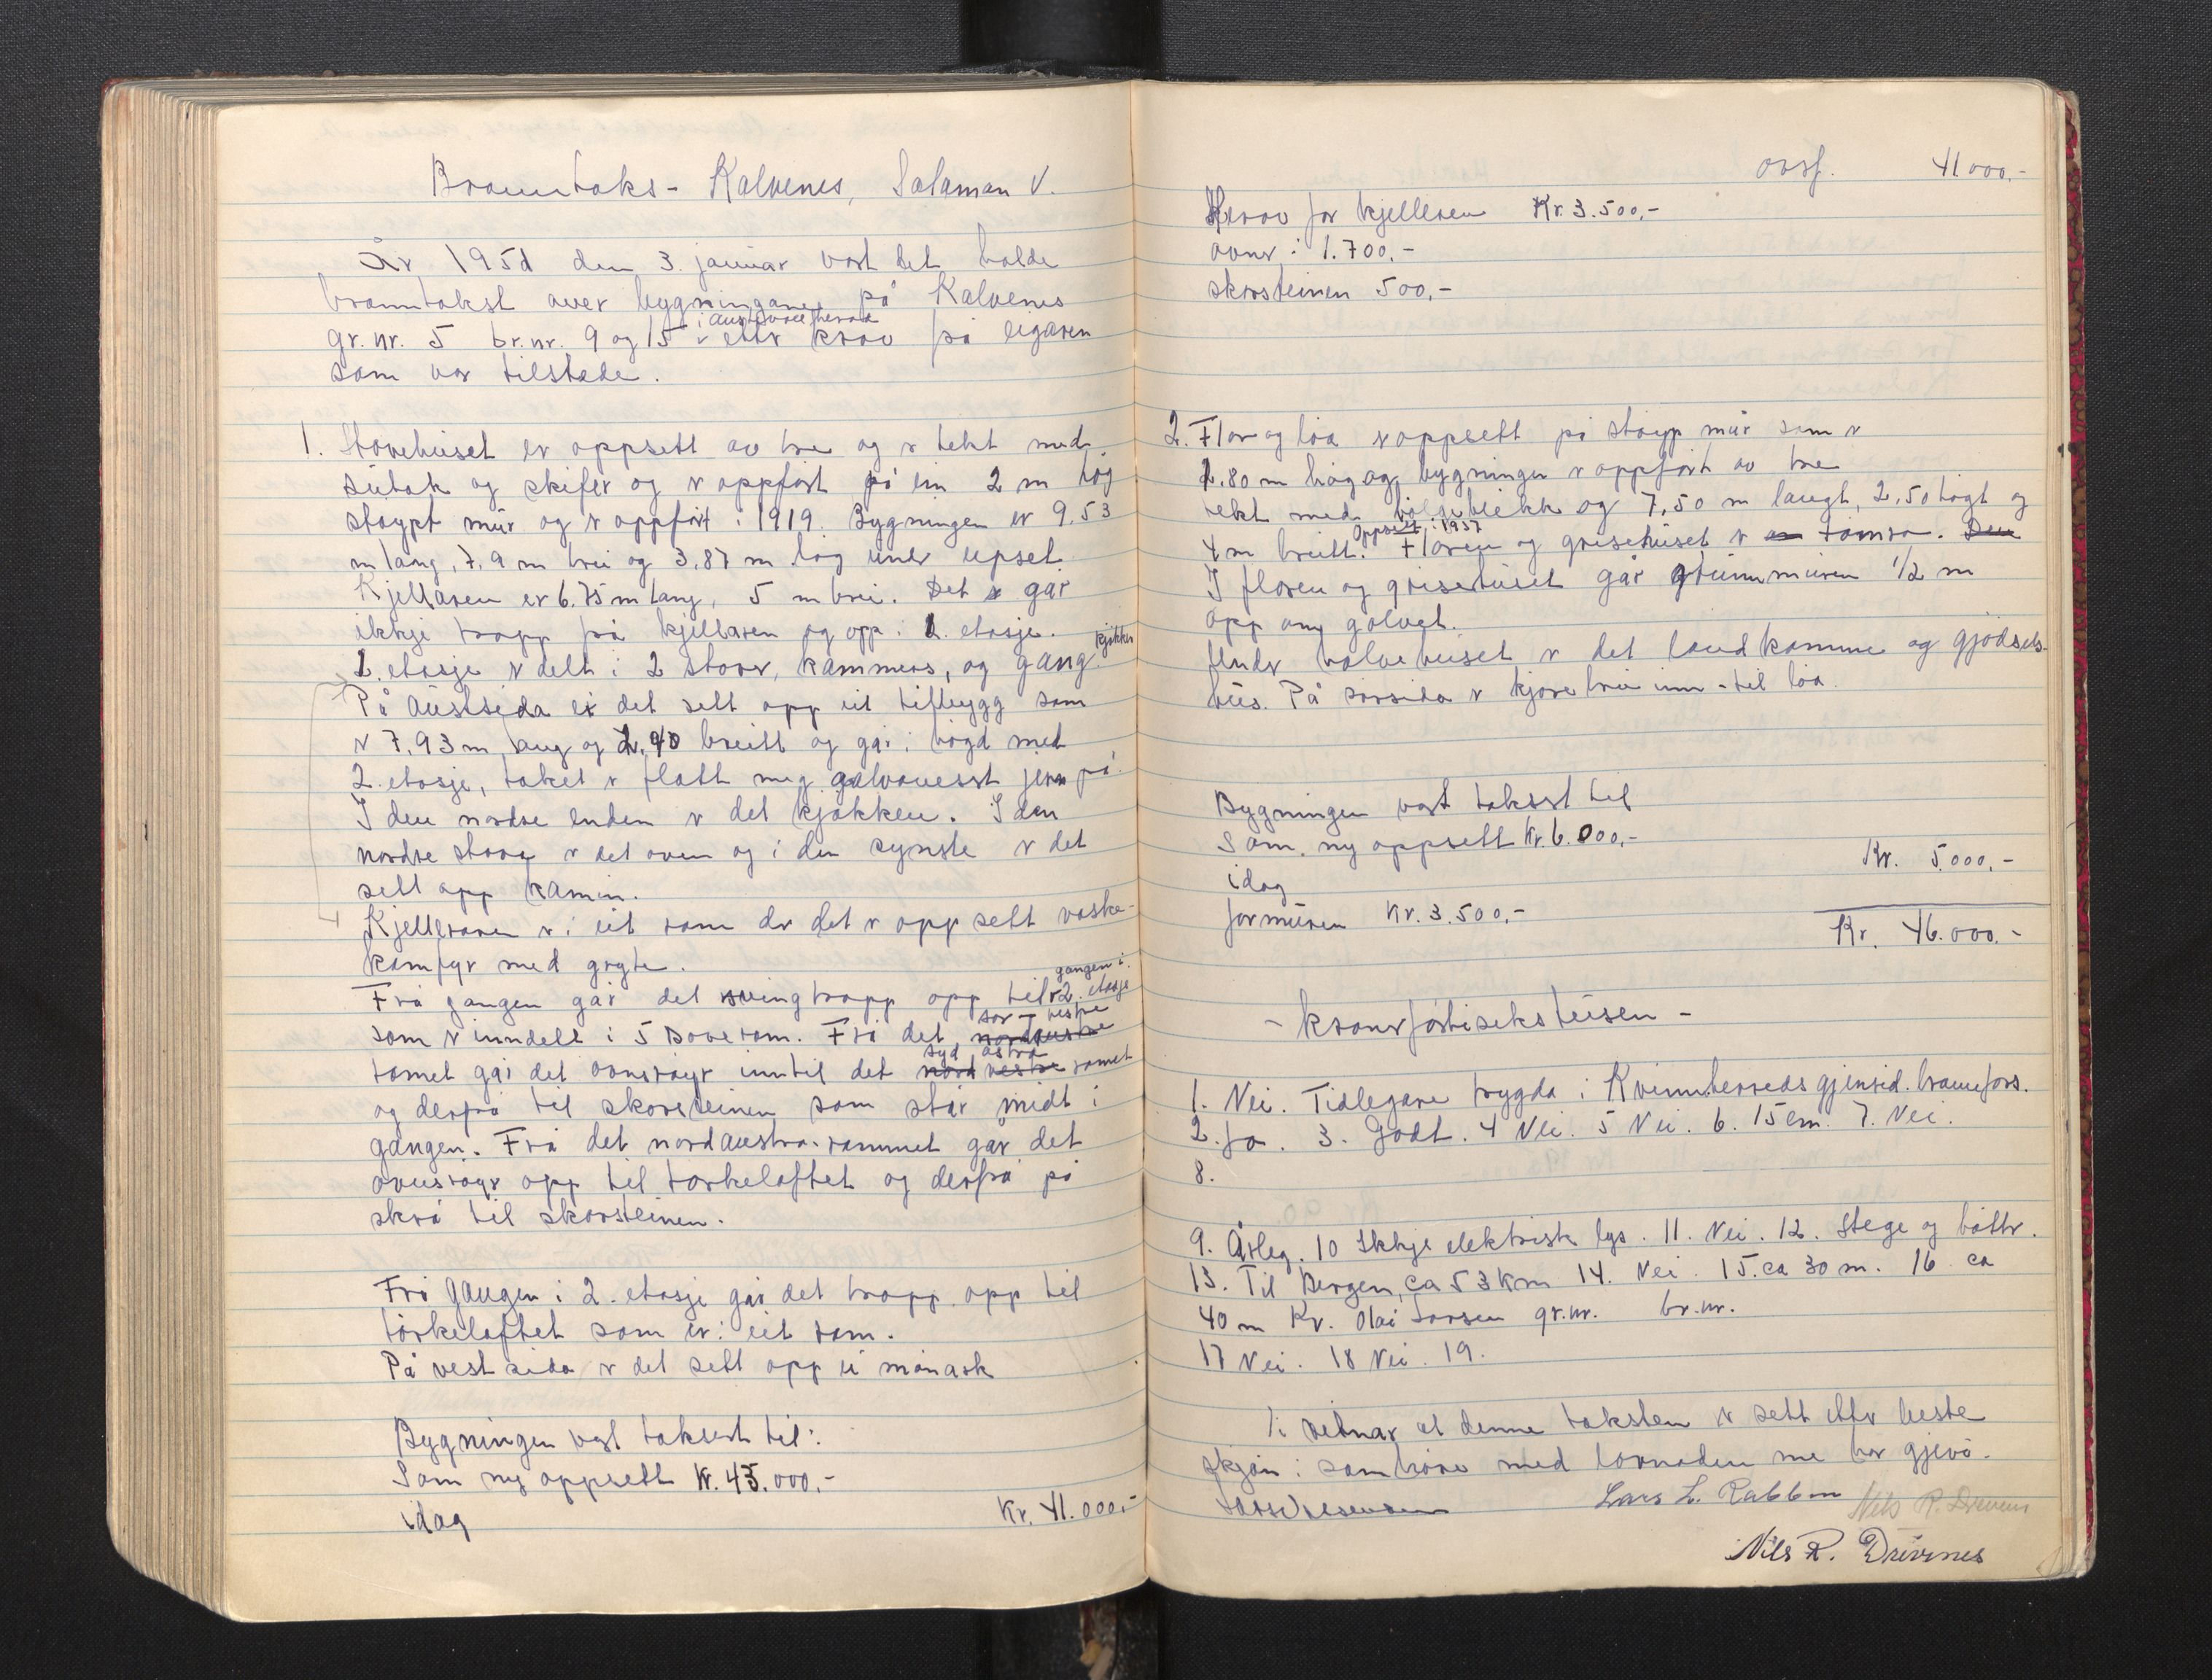 Branntaks- Kalvenes, Salamon V.
År 195d den 3. januar vart det halde
branntakst over bygningane på Kalvenes
i Austevoll herad
gr. nr. 5 br. nr. 9 og 15 etter krav frå eigaren
som var tilstade.
1. Stovehuset er oppsett av tre og r tekt med
sutak og skifer og r oppført på ein 2 m høg
støypt mur og r oppført i 1919. Bygningen er 9.53
m lang, 7,9 m brei og 3,87 m høg under upset.
Kjellaren er 6.75 m lang, 5 m brei. Det går
ikkje trapp frå kjellaren og opp i 1. etasje.
kjøkken
1. etasje r delt i 2 stover, kammers, og gang.
På Austsida er det sett opp eit tilbygg som
r 7.93 m lang og 2,90 breitt og går i høgd med
2. etasje, taket r flatt meg galvanesert jern på.
I den nordre enden r det kjøkken. I den
nordre stova r det oven og i den synste r det
sett opp kamin.
Kjelleraren r i eit rom der det r oppsett vaske-
komfyr med gryte.
gangen i
Frå gangen går det svingtrapp opp til 2. etasje
som r inndelt i 5 soverom. Frå det nordaustre
sør-vestre
romet går det ovnsrøyr inntil det nord vestre romet
syd østra
og derfrå til skorsteinen som står midt i
gangen. Frå det nordaustra-rommet går det
ovnsrøyr opp til tørkeloftet og derfrå på
skrå til skorsteinen.
Frå gangen i 2. etasje går det trapp opp til
tørkeloftet som er i eit rom.
På vestsida r det sett opp ei månark
Bygningen vart taksert til:
Som ny oppsett Kr. 45.000,-
idag Kr. 41.000,-
overf. 41000,-
Herav for kjelleren Kr. 3.500,-
ovner i 1.700,-
skorsteinen 500,-
2. Flor og løa r oppsett på støyp mur som r
1.80 m høg og bygningen r oppført av tre
tekt med bølgeblekk og 7,50 m langt, 2,50 høgt og
Oppsett i 1937
4 m breitt. Floren og grisehuset r en tømra. Den
I floren og grisehuset går grunnmuren 1/2 m
opp ang golvet.
Under halve huset r det landkomme og gjødsels-
hus. På sørsida r kjørebru inn-til løa.
Bygningen vart taksert til
Som ny oppsett Kr. 6.000,-
idag Kr. 5.000,-
for muren Kr. 3.500,-
Kr. 46.000,-
- kronerførtisekstusen -
1. Nei. Tidlegare trygda i Kvinnherreds gjensid. brannfors.
2. Ja. 3. Godt. 4 Nei. 5 Nei. 6. 15 cm. 7. Nei.
8.
9. Årleg. 10 Ikkje elektrisk lys. 11. Nei. 12. Stege og bøtter.
13. Til Bergen, ca 53 km 14. Nei. 15. ca 30 m. 16 ca
40 m Kr. Olai Larsen gr.nr. br.nr.
17 Nei. 18 Nei. 19.
Vi vitnar at denne taksten r sett etter beste
skjøn i samhøve med lovnaden me har gjevo.
Lars L. Rabben Nils R. Drivenes
Nils R. Drivenes